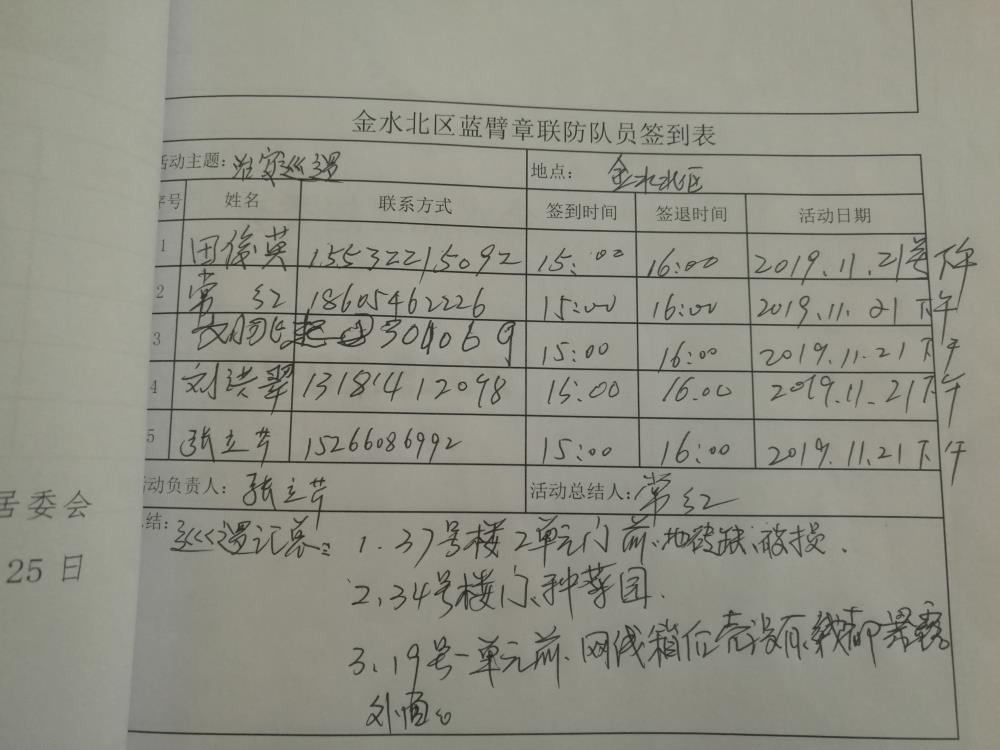 金水北区蓝臂章联防队员签到表
活动主题: 治安巡逻 地点: 金水北区
序号 姓名 联系方式 签到时间 签退时间 活动日期
1 田俊英 15532215092 15:00 16:00 2019.11.21号下午
2 常红 18605462226 15:00 16:00 2019.11.21下午
3 304069 15:00 16:00 2019.11.21下午
4 刘洪翠 13181412098 15:00 16.00 2019.11.21下午
5 张立芹 15266086992 15:00 16:00 2019.11.21下午
活动负责人: 张立芹 活动总结人: 常红
总结: 巡逻记录: 1.37号楼2单元门前、地砖缺、破损.
2、34号楼门、种菜园.
3、19号一单元前、网线箱后壳没有、线都暴露
外面。
居委会
25日